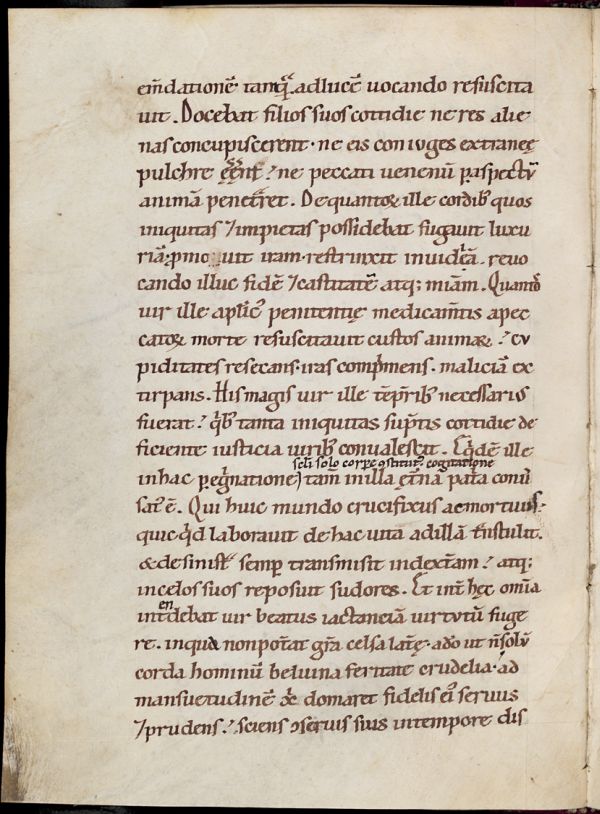 em̅datione̅ tanq̅ᵃ. ad luce̅ uocando resuscita
uit. Docebat filios suos cottidie ne res alie
nas concupiscerent · ne eis coniuges extraneę
pulchre ne peccati uenenu̅ ꝑ aspectu̅
anima̅ penet̅ret. De quantoꝝ ille cordib; quos
iniquitas ⁊ impietas possidebat fugauit luxu
ria̅. ꝓmouit iram. restrinxit inuidia̅. reuo
cando illuc fide̅ ⁊ castitate̅ atq; mia̅m. Quanto̅
uir ille aplic̅ penitentię medicam̅tis a pec
catoꝝ morte resuscitauit custos animaꝝ. cu
piditates resecans · iras comp̅mens · malicia̅ ex
tirpans. His magis uir ille te̅p̅rib; necessarius
fuerat. qⁱb; tanta iniquitas sup̅tis cottidie de
ficiente iusticia uirib; conualescit. Eqⁱde̅ ille
scil̅ solo corpe ꝯstitut. cogitatione
in hac ꝑeg̅natione tam̅ in illa et̅na pat̅a conu̅
sat᷒ e̅. Qui huic mundo crucifixus ac mortuus.
quicqⁱd laborauit de hac uita ad illa̅ t̅nstulit.
& de sinist̅ semꝑ transmisit in dext̅am. atq;
in celos suos reposuit sudores. Et int̅ hęc om̅ia
en
int̅debat uir beatus iactancia̅ uirtutu̅ fuge
re. in qua non poterat gr̅a celsa lat̅e · adeo ut n̅ solu̅
corda hominu̅ beluina feritate crudelia · ad
mansuetudine̅ domaret fidelis ei᷒ seruus
⁊ prudens. sciens ꝯseruis suis in tempore dis